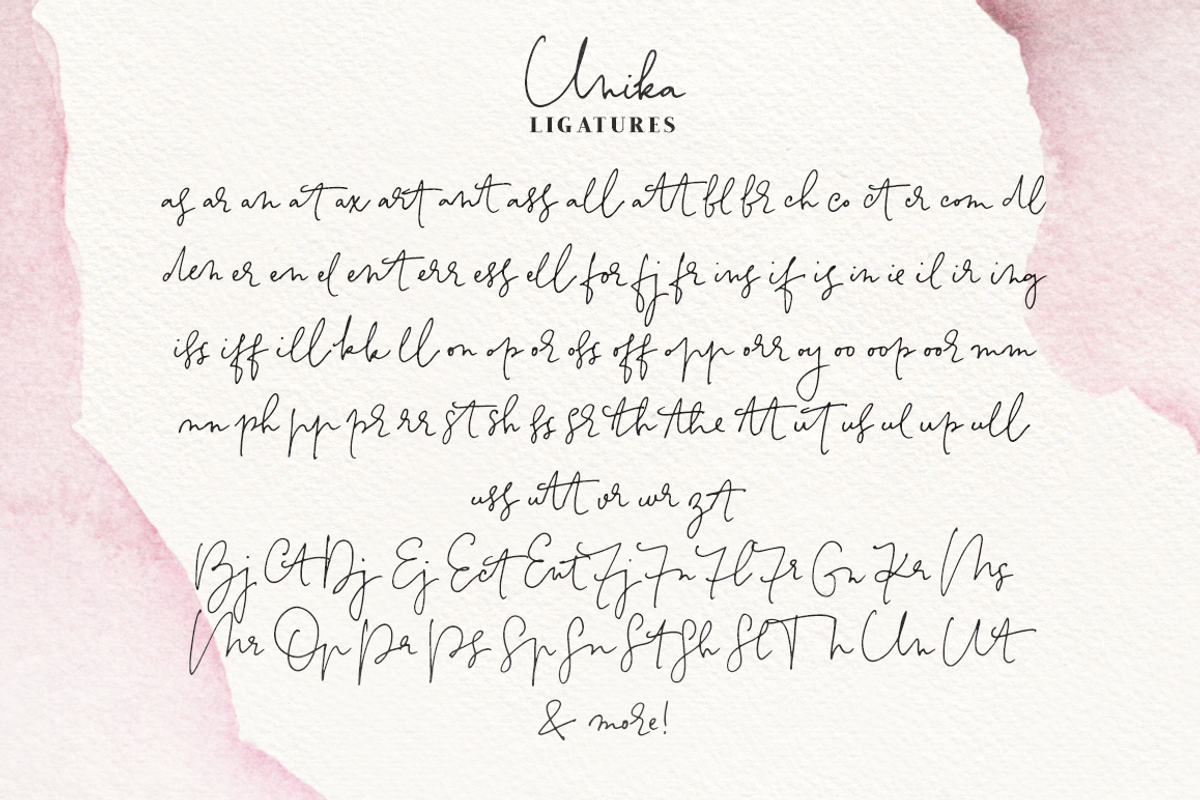 Unika
LIGATURES
as ar an at ax art ant ass all att bl br ch co ct cr com dl
den er en el ent err ess ell for fj fr ins if is in ie il ir ing
iss iff ill kk ll on op or oss off opp orr oy oo oop oor mm
nn ph pp pr rr st sh ss sr th the tt ut us ul up ull
uss utt vr wr zt
Bj Ct Dj Ej Ect Ent Fj Fn Fl Fr Gn Kr Ms
Mr Op Pr Ps Sp Sn St Sh Sl Th Un Ut
& more!